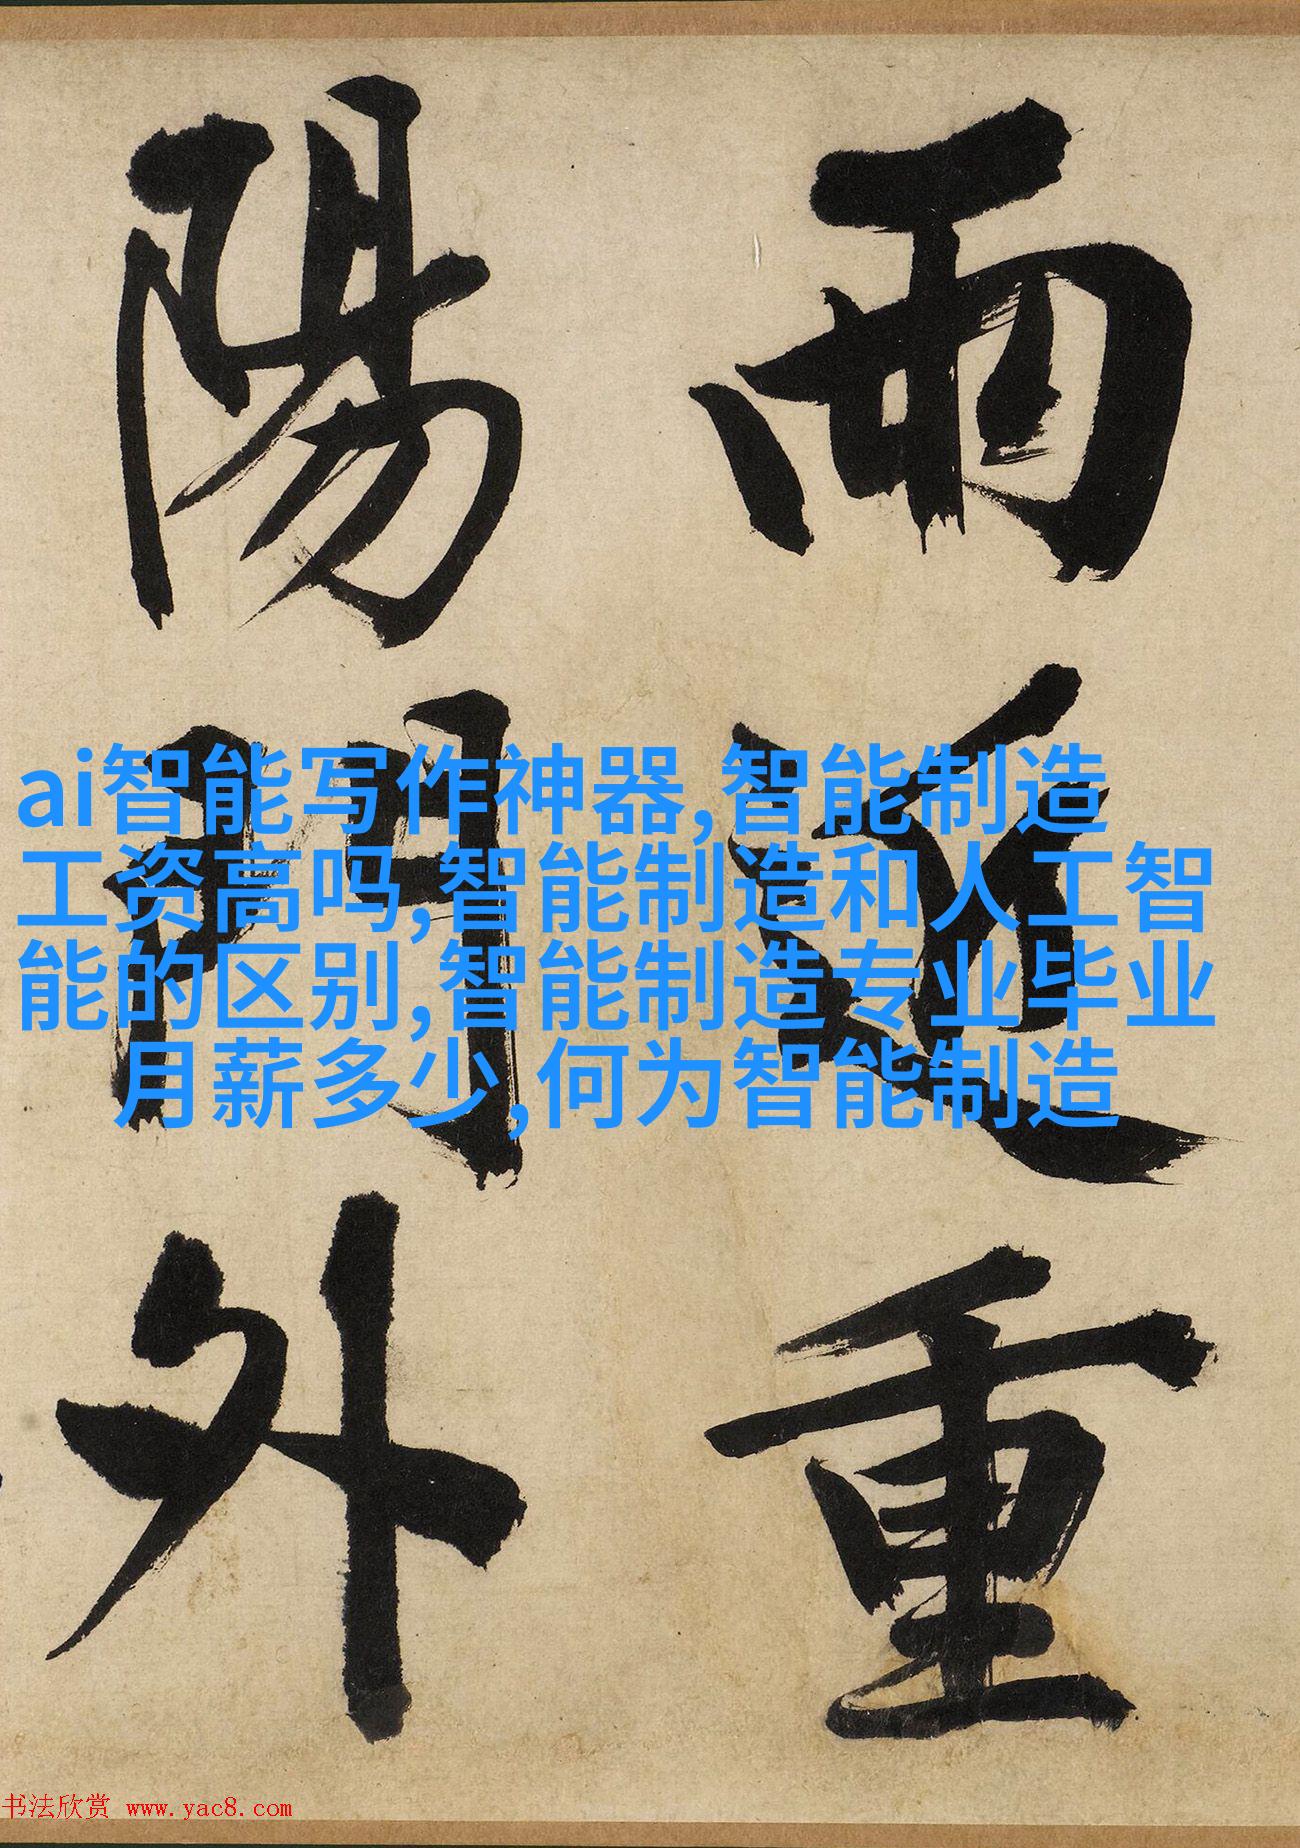 雨近重
陽門外
ai智能写作神器,智能制造
工资高吗,智能制造和人工智
能的区别,智能制造专业毕业
月薪多少,何为智能制造
书法欣赏 www.yac8.com